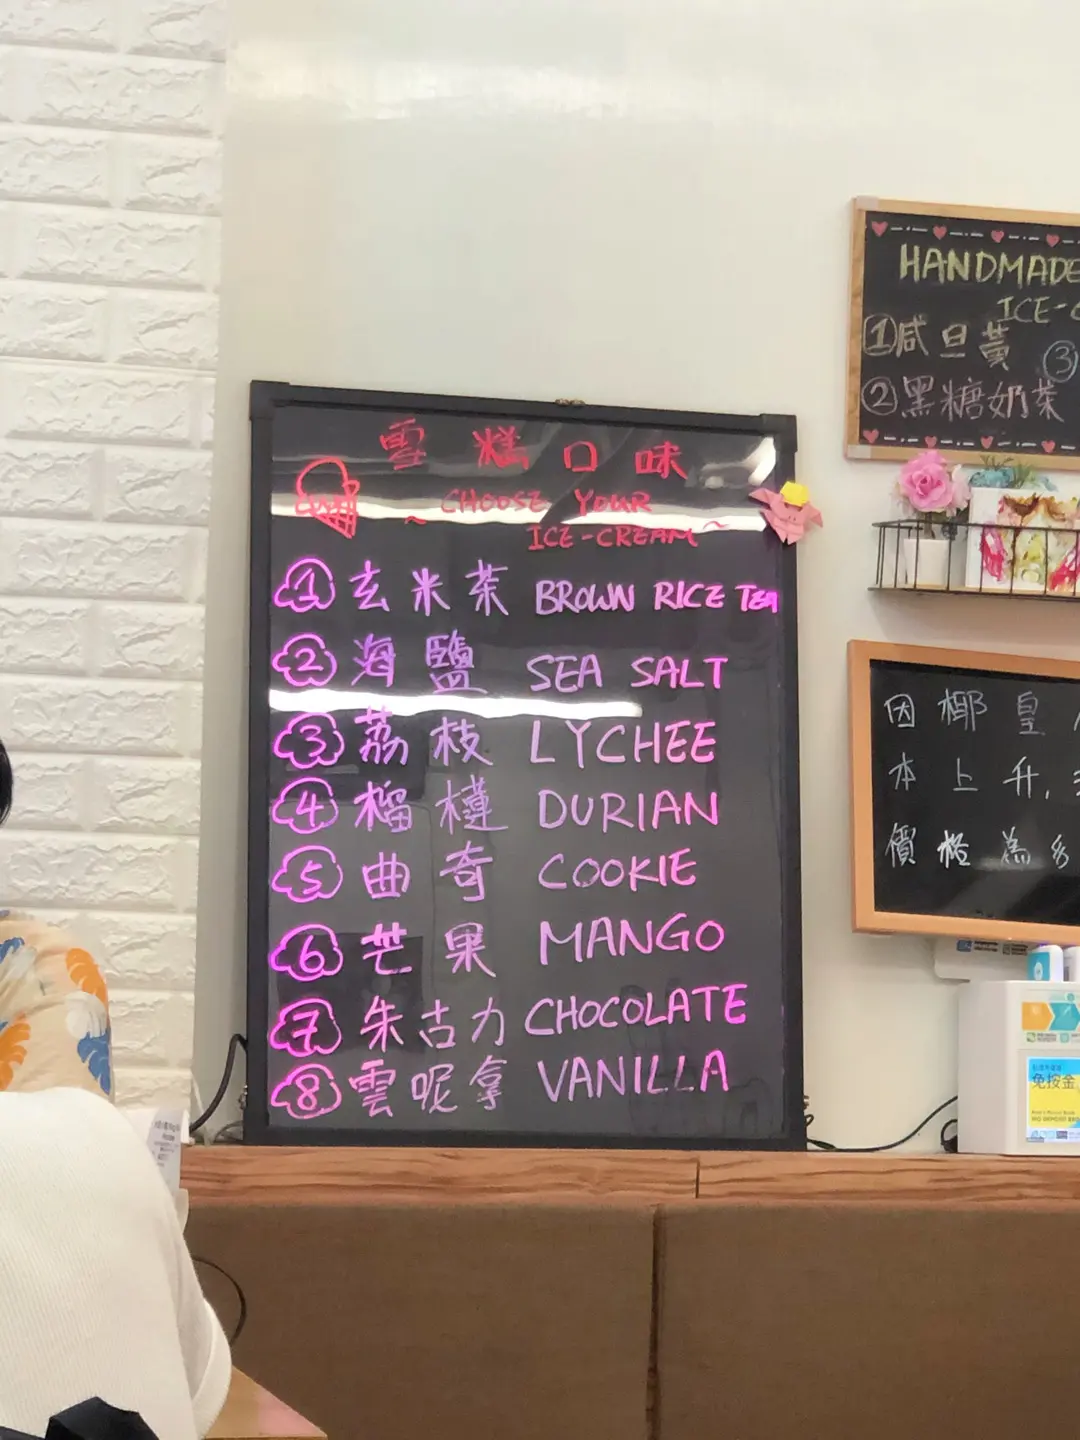 雪糕口味
~ CHOOSE YOUR
ICE-CREAM ~
① 玄米茶 BROWN RICE TEA
② 海鹽 SEA SALT
③ 荔枝 LYCHEE
④ 榴槤 DURIAN
⑤ 曲奇 COOKIE
⑥ 芒果 MANGO
⑦ 朱古力 CHOCOLATE
⑧ 雲呢拿 VANILLA
HANDMADE
ICE-C
① 咸旦黃 ③
② 黑糖奶茶
因椰皇
本上升,
價格為
免按金